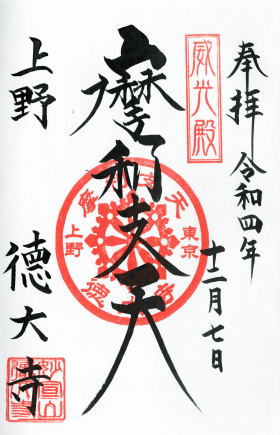 奉拝 令和四年
十二月七日
威光殿
摩利支天
摩支天
東京
上野
徳
上野 徳大寺